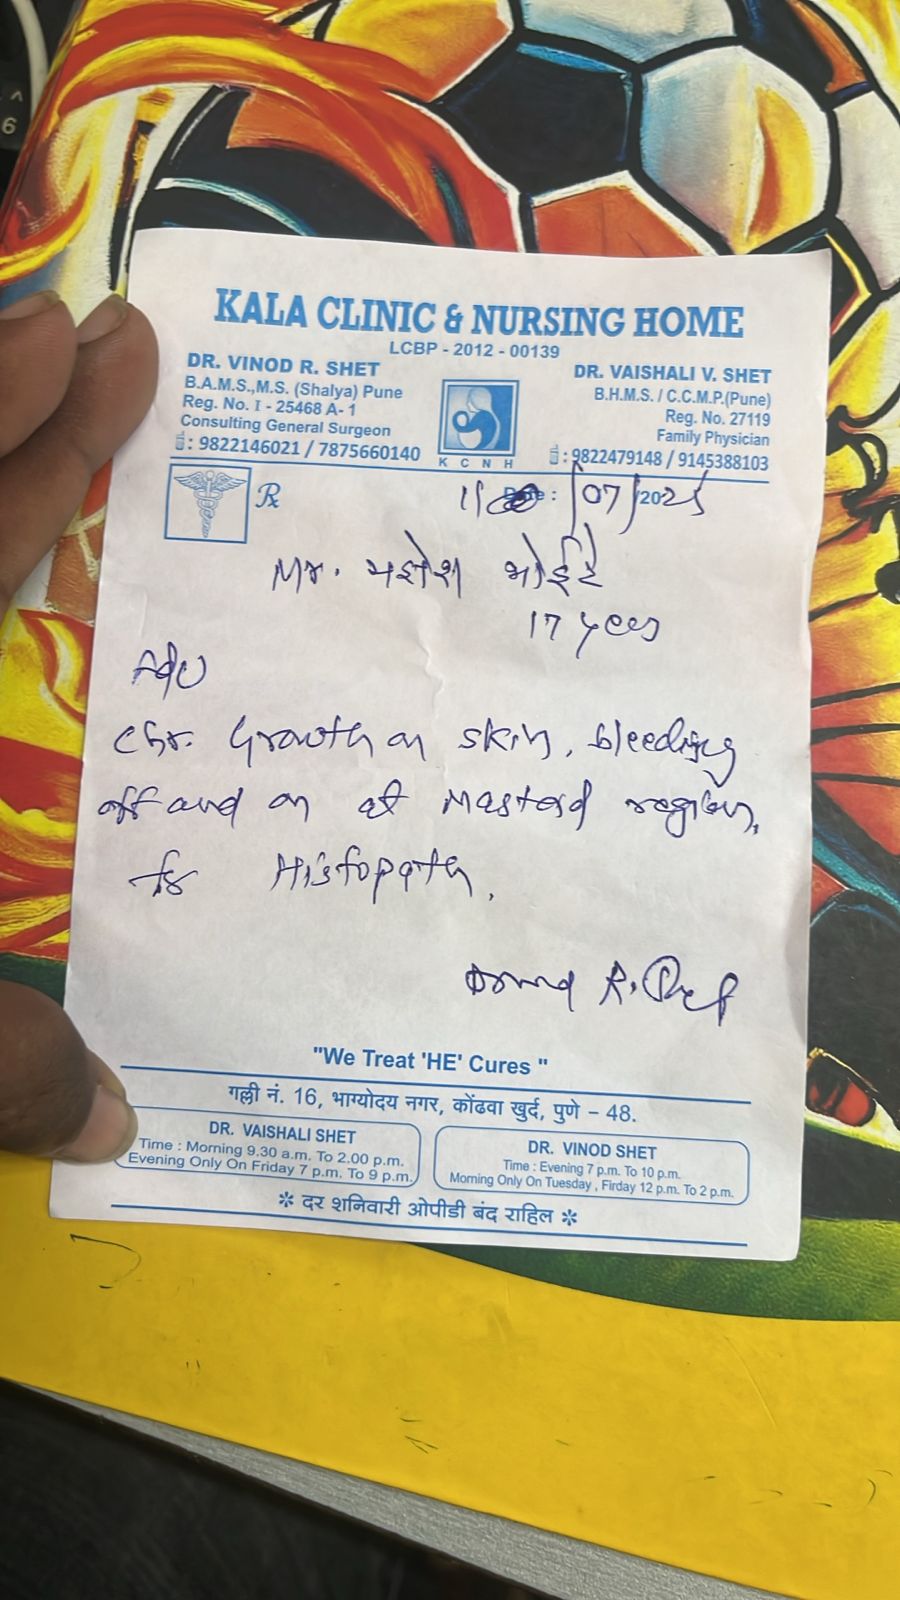 KALA CLINIC & NURSING HOME
LCBP - 2012 - 00139
DR. VINOD R. SHET
B.A.M.S.,M.S. (Shalya) Pune
Reg. No. I - 25468 A- 1
Consulting General Surgeon
: 9822146021 / 7875660140
K C N H
DR. VAISHALI V. SHET
B.H.M.S. / C.C.M.P.(Pune)
Reg. No. 27119
Family Physician
: 9822479148 / 9145388103
℞
Date : /07/2025
Mr. भोईटे
17 yees
Adv
Chr. Growth on skin, bleeding
off and on at Mastoid region.
for Histopath.
R. Shet
"We Treat 'HE' Cures "
गल्ली नं. 16, भाग्योदय नगर, कोंढवा खुर्द, पुणे – 48.
DR. VAISHALI SHET
Time : Morning 9.30 a.m. To 2.00 p.m.
Evening Only On Friday 7 p.m. To 9 p.m.
DR. VINOD SHET
Time : Evening 7 p.m. To 10 p.m.
Morning Only On Tuesday , Firday 12 p.m. To 2 p.m.
✻ दर शनिवारी ओपीडी बंद राहिल ✻
6